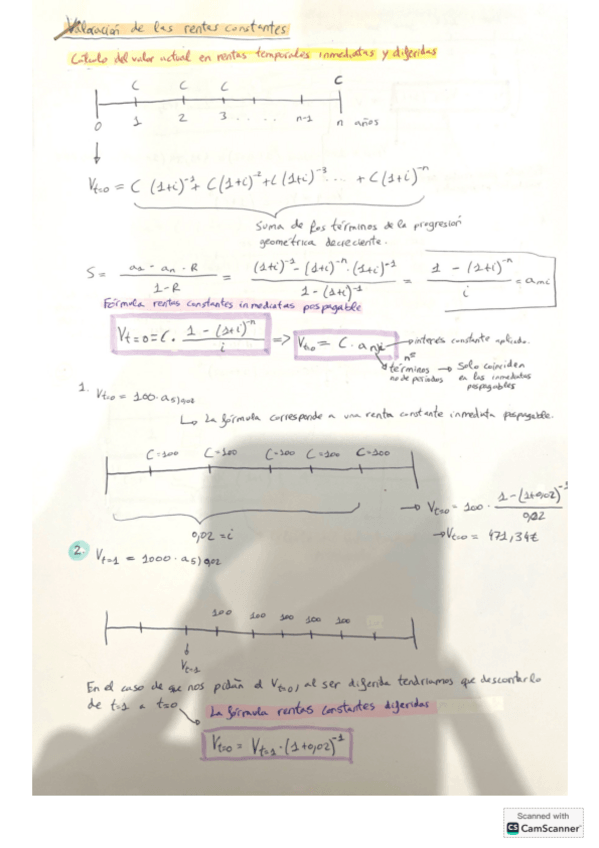 Valoración de las rentas constantes
Cálculo del valor actual en rentas temporales inmediatas y diferidas
C C C C
0 1 2 3 . . . . . n-1 n años
Vt=0 = C (1+i)^-1 + C(1+i)^-2 + C(1+i)^-3 ... + C(1+i)^-n
Suma de los términos de la progresión
geométrica decreciente.
S = (a1 - an · R) / (1-R) = ((1+i)^-1 - (1+i)^-n · (1+i)^-1) / (1 - (1+i)^-1) = (1 - (1+i)^-n) / i = an¬i
Fórmula rentas constantes inmediatas pospagable
Vt=0 = C · (1 - (1+i)^-n) / i => Vt=0 = C · an¬i → interés constante aplicado.
nº
términos → Solo coinciden
no de períodos en las inmediatas
pospagables
1. Vt=0 = 100 · a5¬0,02
↳ La fórmula corresponde a una renta constante inmediata pospagable.
C=100 C=100 C=100 C=100 C=100
→ Vt=0 = 100 · (1-(1+0,02)^-5) / 0,02
0,02 = i
→ Vt=0 = 471,34€
2. Vt=1 = 1000 · a5¬0,02
100 100 100 100 100
Vt=1
En el caso de que nos pidan el Vt=0, al ser diferida tendríamos que descontarlo
de t=1 a t=0
La fórmula rentas constantes diferidas
Vt=0 = Vt=1 · (1+0,02)^-1
Scanned with
CS CamScanner